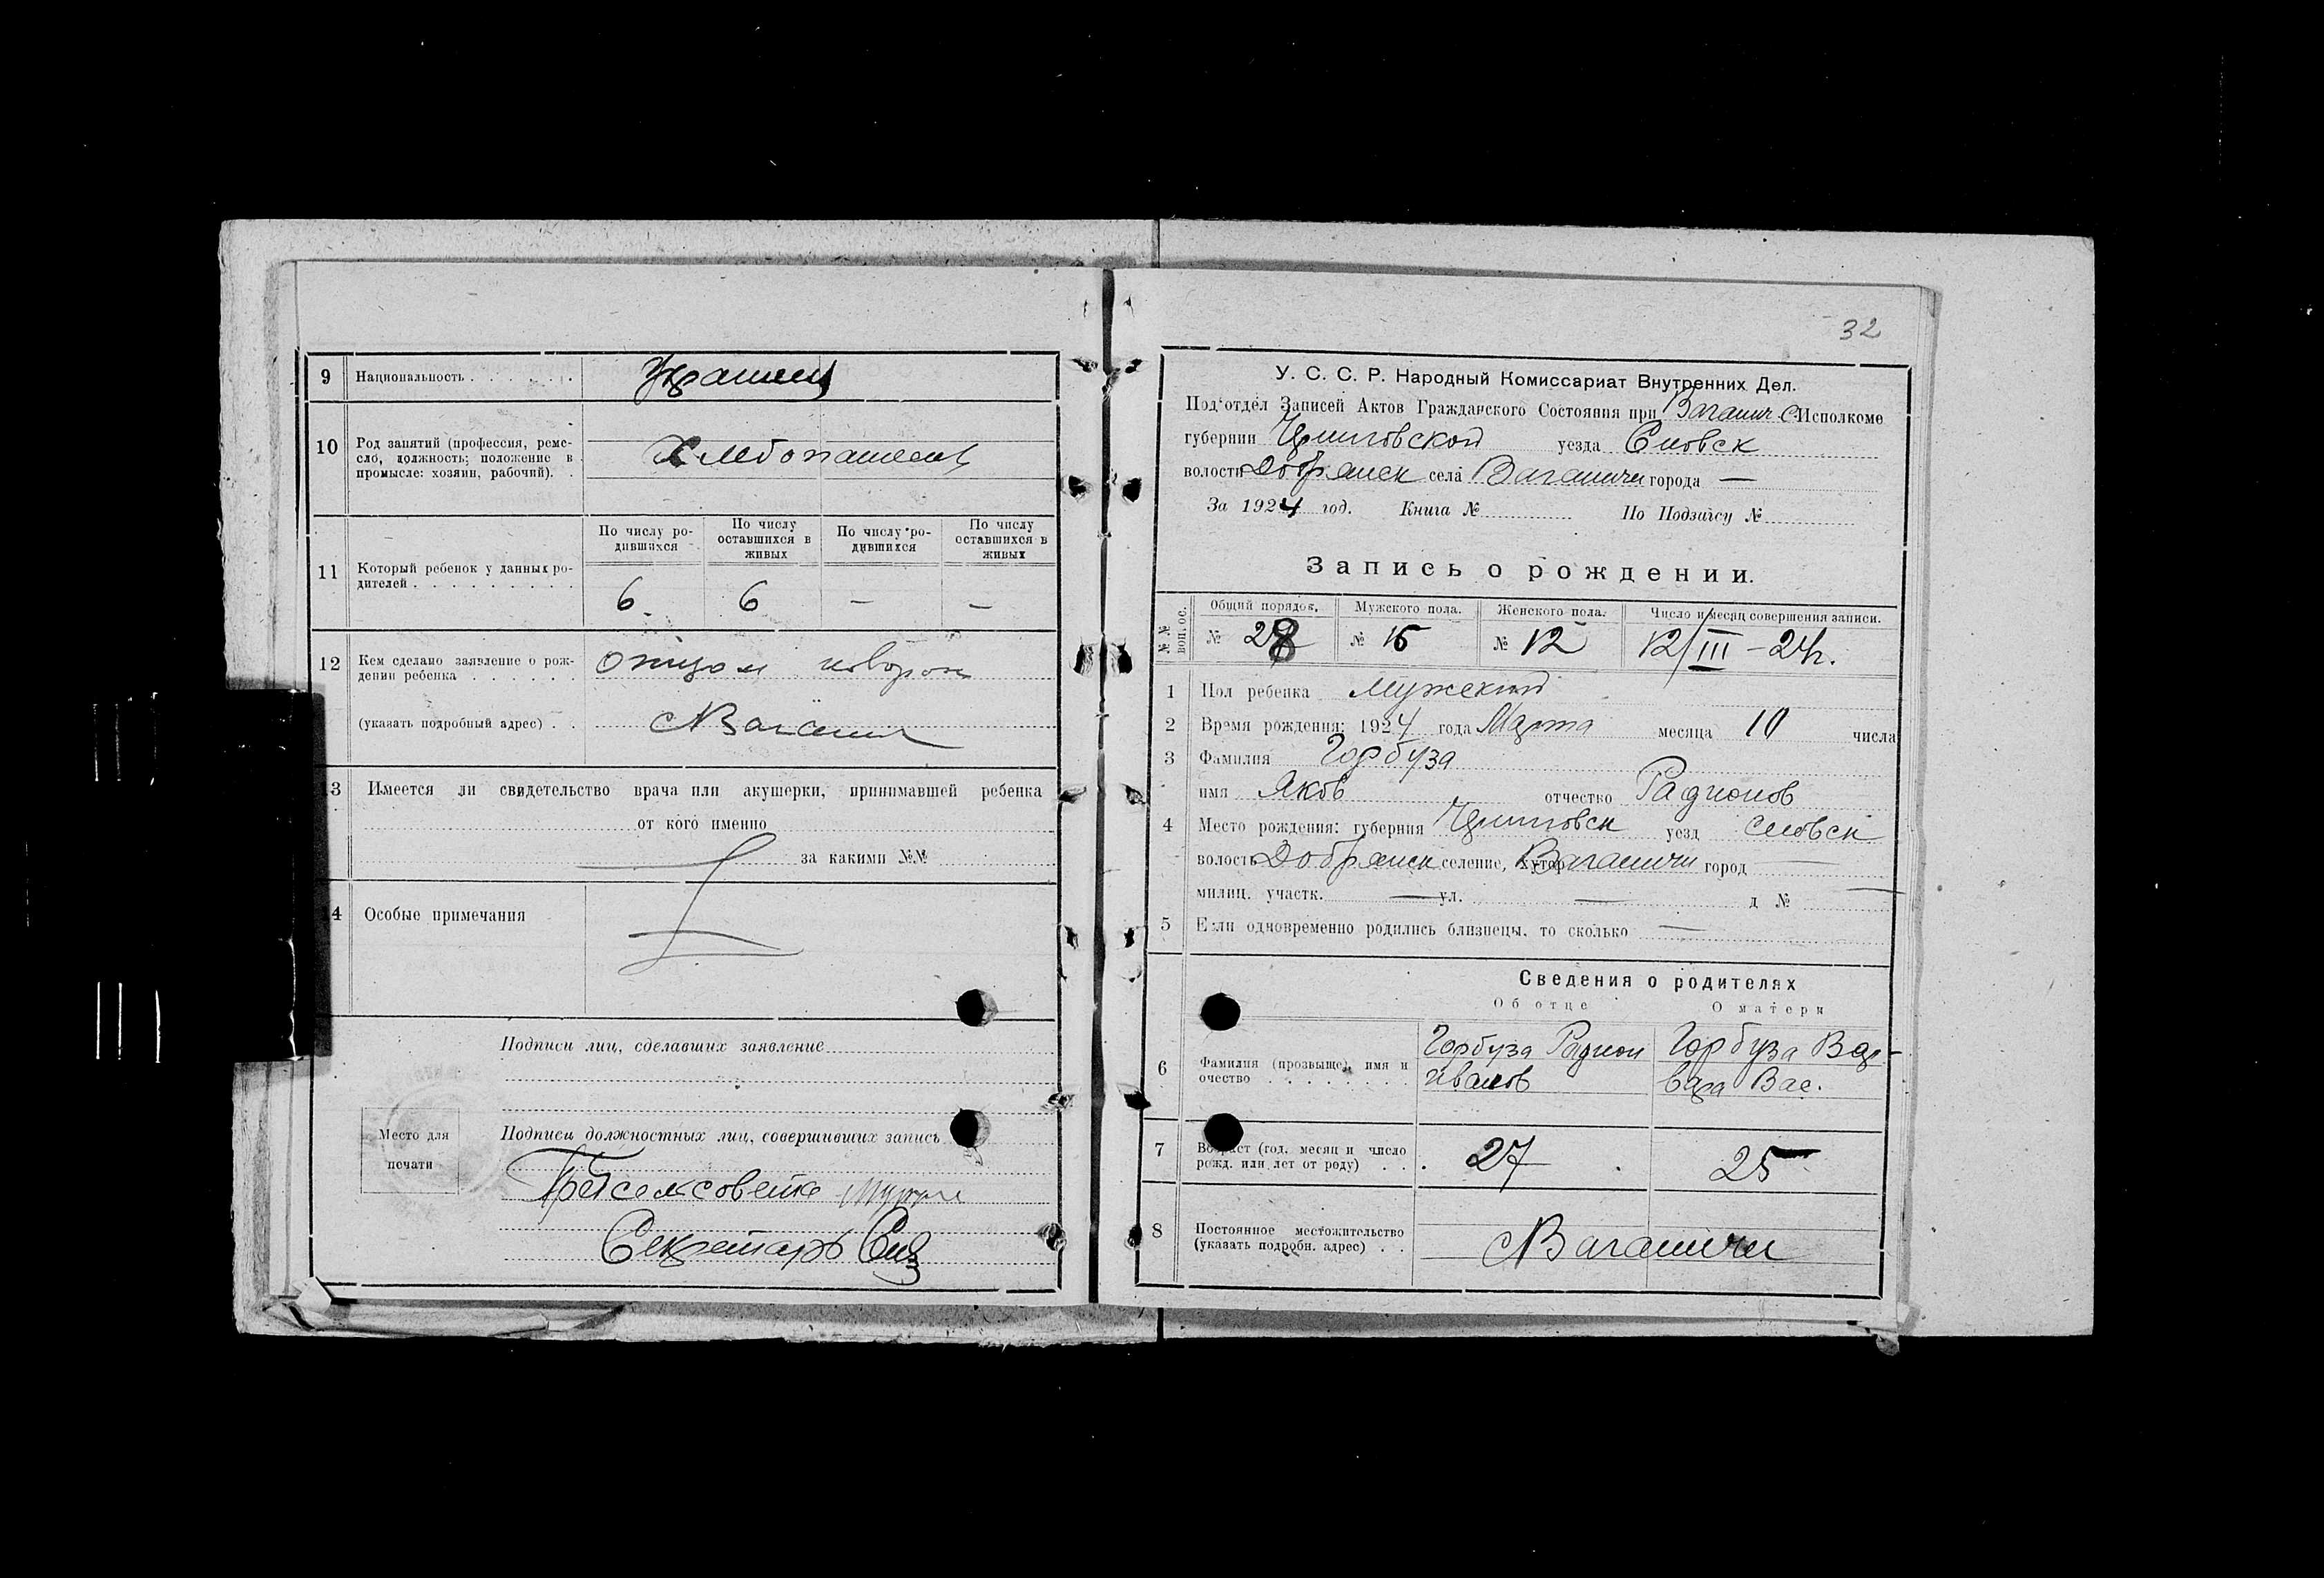 9 Национальность . . . . . . Украинец
10 Род занятий (профессия, реме-
сло, должность; положение в
промысле: хозяин, рабочий). .
Хлебопашец
По числу ро-
дившихся
По числу
оставшихся в
живых
По числу ро-
дившихся
По числу
оставшихся в
живых
11 Который ребенок у данных ро-
дителей . . . . . . . . . .
6 6 — —
12 Кем сделано заявление о рож-
дении ребенка . . . . . . отцом
(указать подробный адрес) . .
3 Имеется ли свидетельство врача или акушерки, принимавшей ребенка
от кого именно
за какими №№
4 Особые примечания
Подписи лиц, сделавших заявление
Место для
печати
Подписи должностных лиц, совершивших запись
Секретарь
32
У. С. С. Р. Народный Комиссариат Внутренних Дел.
Под'отдел Записей Актов Гражданского Состояния при Ваганич. С.Исполкоме
губернии Черниговской уезда Сновск
волости Добрянск села Ваганичи города —
За 1924 год. Книга № По Подзагсу №
Запись о рождении.
№№ воп.ос.
Общий порядок. Мужского пола. Женского пола. Число и месяц совершения записи.
№ 28 № 16 № 12 12/III – 24 г.
1 Пол ребенка Мужский
2 Время рождения: 1924 года Марта месяца 10 числа
3 Фамилия Горбуза
имя Яков отчество Радионов
4 Место рождения: губерния Черниговск уезд Сновск
волость Добрянск селение, хутор Ваганичи город —
милиц. участк. — ул. — д № —
5 Если одновременно родились близнецы, то сколько —
Сведения о родителях
Об отце О матери
6 Фамилия (прозвыще), имя и
очество . . . . . . . .
Горбуза Радион
Иванов
Горбуза Вар-
вара Вас.
7 Возраст (год. месяц и число
рожд. или лет от роду) . .
27 25
8 Постоянное местожительство
(указать подробн. адрес) . .
с Ваганичи